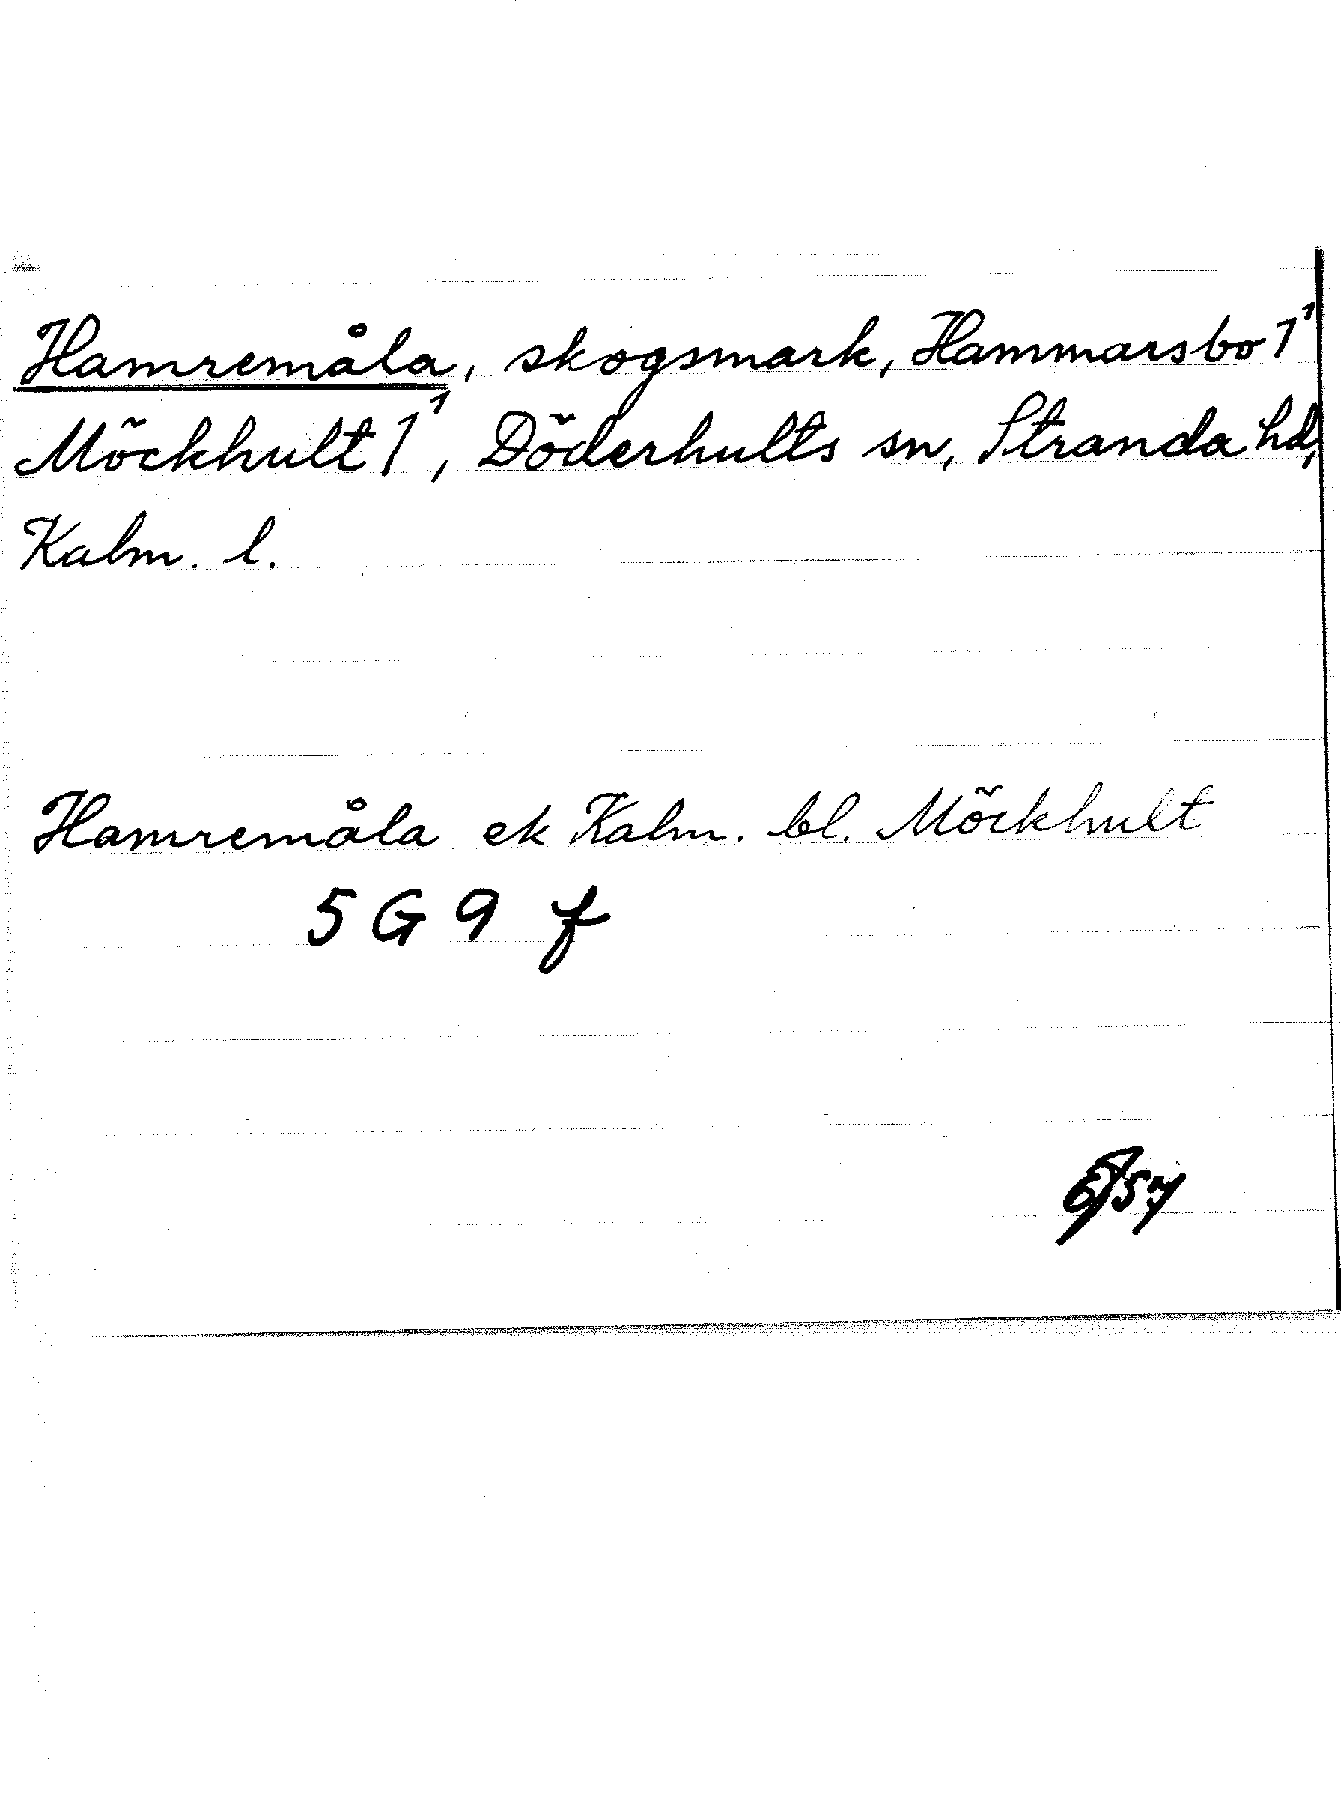 Hamremåla, skogsmark, Hammarsbo 1¹
Möckhult 1¹, Döderhults sn, Stranda hd,
Kalm. l.
Hamremåla ek Kalm. bl. Möckhult
5 G 9 f